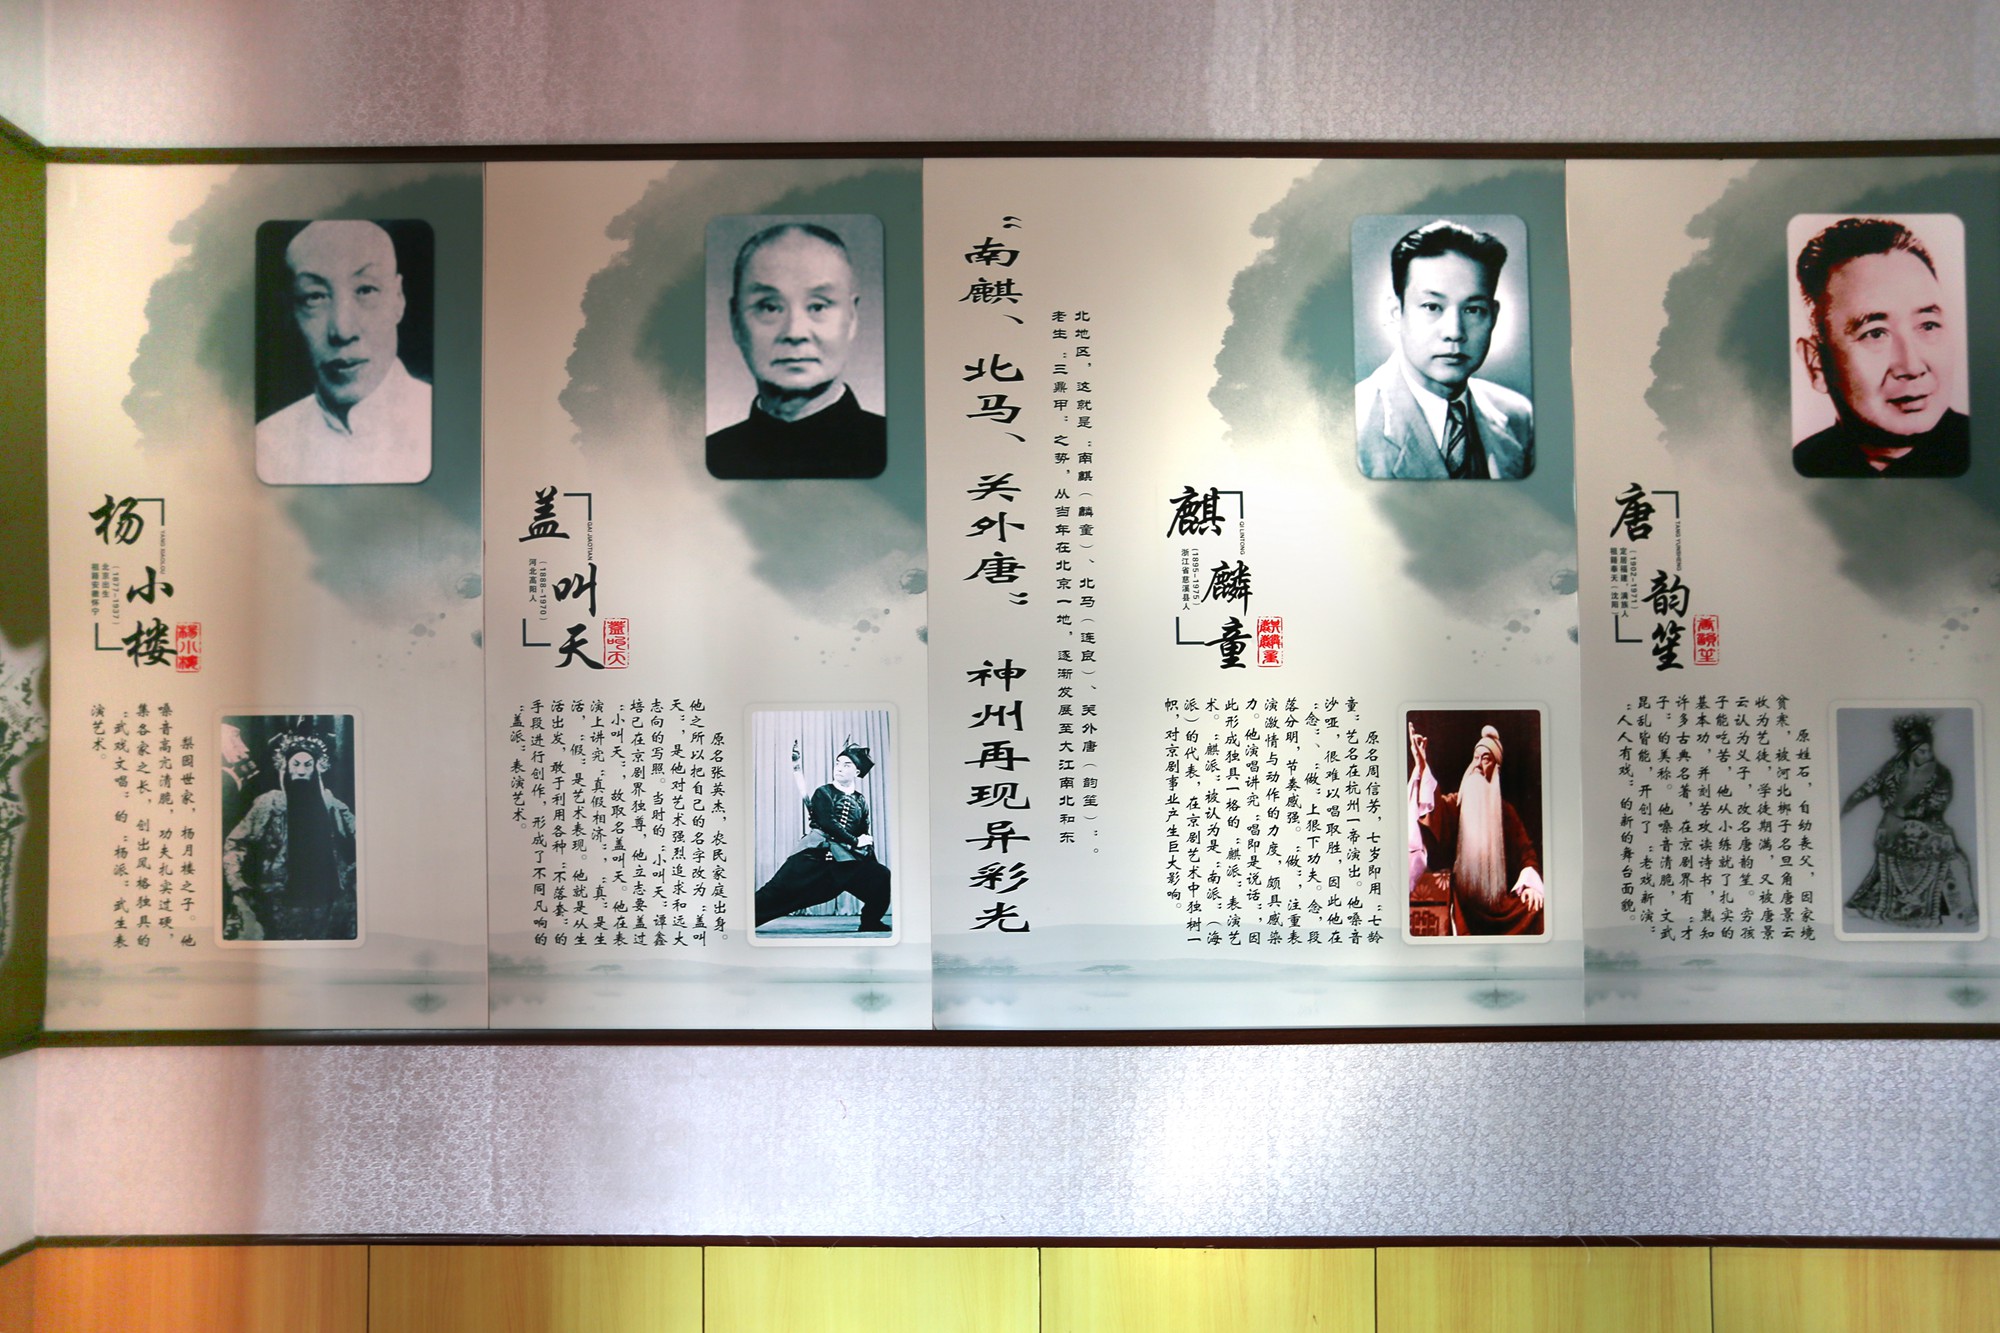 杨小楼
YANG XIAOLOU
(1877-1937)
北京出生
祖籍安徽怀宁
杨小楼
梨园世家，杨月楼之子。他
嗓音高亢清脆，功夫扎实过硬，
集各家之长，创出风格独具的
“武戏文唱”的“杨派”武生表
演艺术。
盖叫天
GAI JIAOTIAN
(1888-1970)
河北高阳人
盖叫天
原名张英杰，农民家庭出身。
他之所以把自己的名字改为“盖叫
天”，是他对艺术强烈追求和远大
志向的写照。当时的“小叫天”谭鑫
培已在京剧界独尊，他立志要盖过
“小叫天”，故取名盖叫天。他在表
演上讲究“真假相济”，“真”是生
活，“假”是艺术表现。他就是从生
活出发，敢于利用各种“不落套”的
手段进行创作，形成了不同凡响的
“盖派”表演艺术。
“南麒、北马、关外唐” 神州再现异彩光
老生“三鼎甲”之势，从当年在北京一地，逐渐发展至大江南北和东
北地区，这就是“南麒（麟童）、北马（连良）、关外唐（韵笙）”。
麒麟童
QI LINTONG
(1895-1975)
浙江省慈溪县人
麒麟童
原名周信芳，七岁即用“七龄
童”艺名在杭州一带演出。他嗓音
沙哑，很难以唱取胜，因此他在
“念”、“做”上狠下功夫。念，段
落分明，节奏感强。“做”，注重表
演激情与动作的力度，颇具感染
力。他演唱讲究“唱即是说话”，因
此形成独具一格的“麒派”表演艺
术。“麒派”被认为是“南派”（海
派）的代表，在京剧艺术中独树一
帜，对京剧事业产生巨大影响。
唐韵笙
TANG YUNSHENG
(1902-1971)
定居福建，满族人
祖籍奉天（沈阳）
唐韵笙
原姓石，自幼丧父，因家境
贫寒，被河北梆子名旦角唐景云
收为艺徒，学徒期满，又被唐景
云认为义子，改名唐韵笙。穷孩
子能吃苦，他从小练就了扎实的
基本功，并刻苦攻读诗书，熟知
许多古典名著，在京剧界有“才
子”的美称。他嗓音清脆，文武
昆乱皆能，开创了“老戏新演”
“人人有戏”的新的舞台面貌。